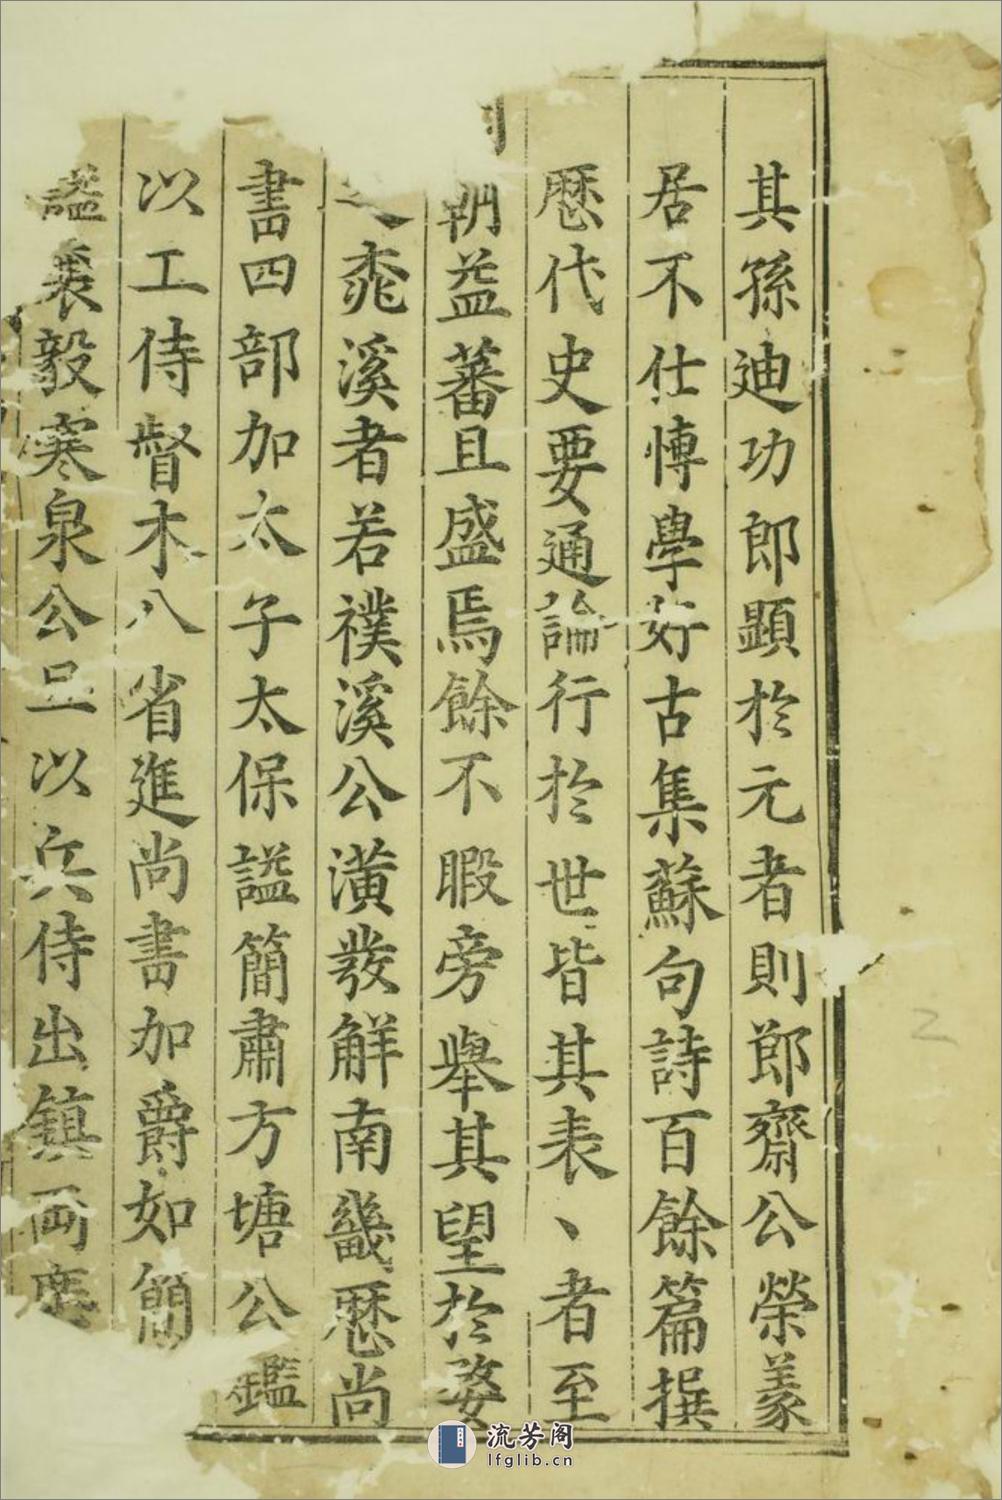 其孫迪功郎顯於元者則郎齋公榮䝉
居不仕博學好古集蘇句詩百餘篇撰
歴代史要通論行於世皆其表丶者至
朝益蕃且盛焉餘不暇旁舉其望於婺
溪者若襆溪公潢發解南畿歴尚
書四部加太子太保謚簡肅方塘公鑑
以工侍督木八省進尚書加爵如簡
謚襄毅寒泉公旦以兵侍出鎮兩廣
流芳阁
lfglib.cn